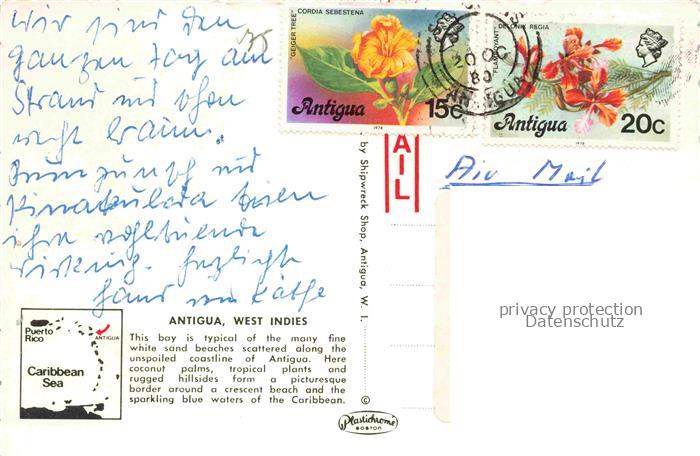 Wir sind den
ganzen Tag am
Strand und schon
recht braun.
Rumpunsch und
Pinacolada tuen
ihre wohltuende
Wirkung. Herzlichst
Hans und Käthe
75
"GEIGER TREE" CORDIA SEBESTENA
Antigua 15c
1978
"FLAMBOYANT" DELONIX REGIA
Antigua 20c
1978
20 OC
80
ANTIGUA
AIL
by Shipwreck Shop, Antigua, W. I.
Air Mail
privacy protection
Datenschutz
Puerto Rico
ANTIGUA
Caribbean Sea
ANTIGUA, WEST INDIES
This bay is typical of the many fine
white sand beaches scattered along the
unspoiled coastline of Antigua. Here
coconut palms, tropical plants and
rugged hillsides form a picturesque
border around a crescent beach and the
sparkling blue waters of the Caribbean.
©
Plastichrome
BOSTON